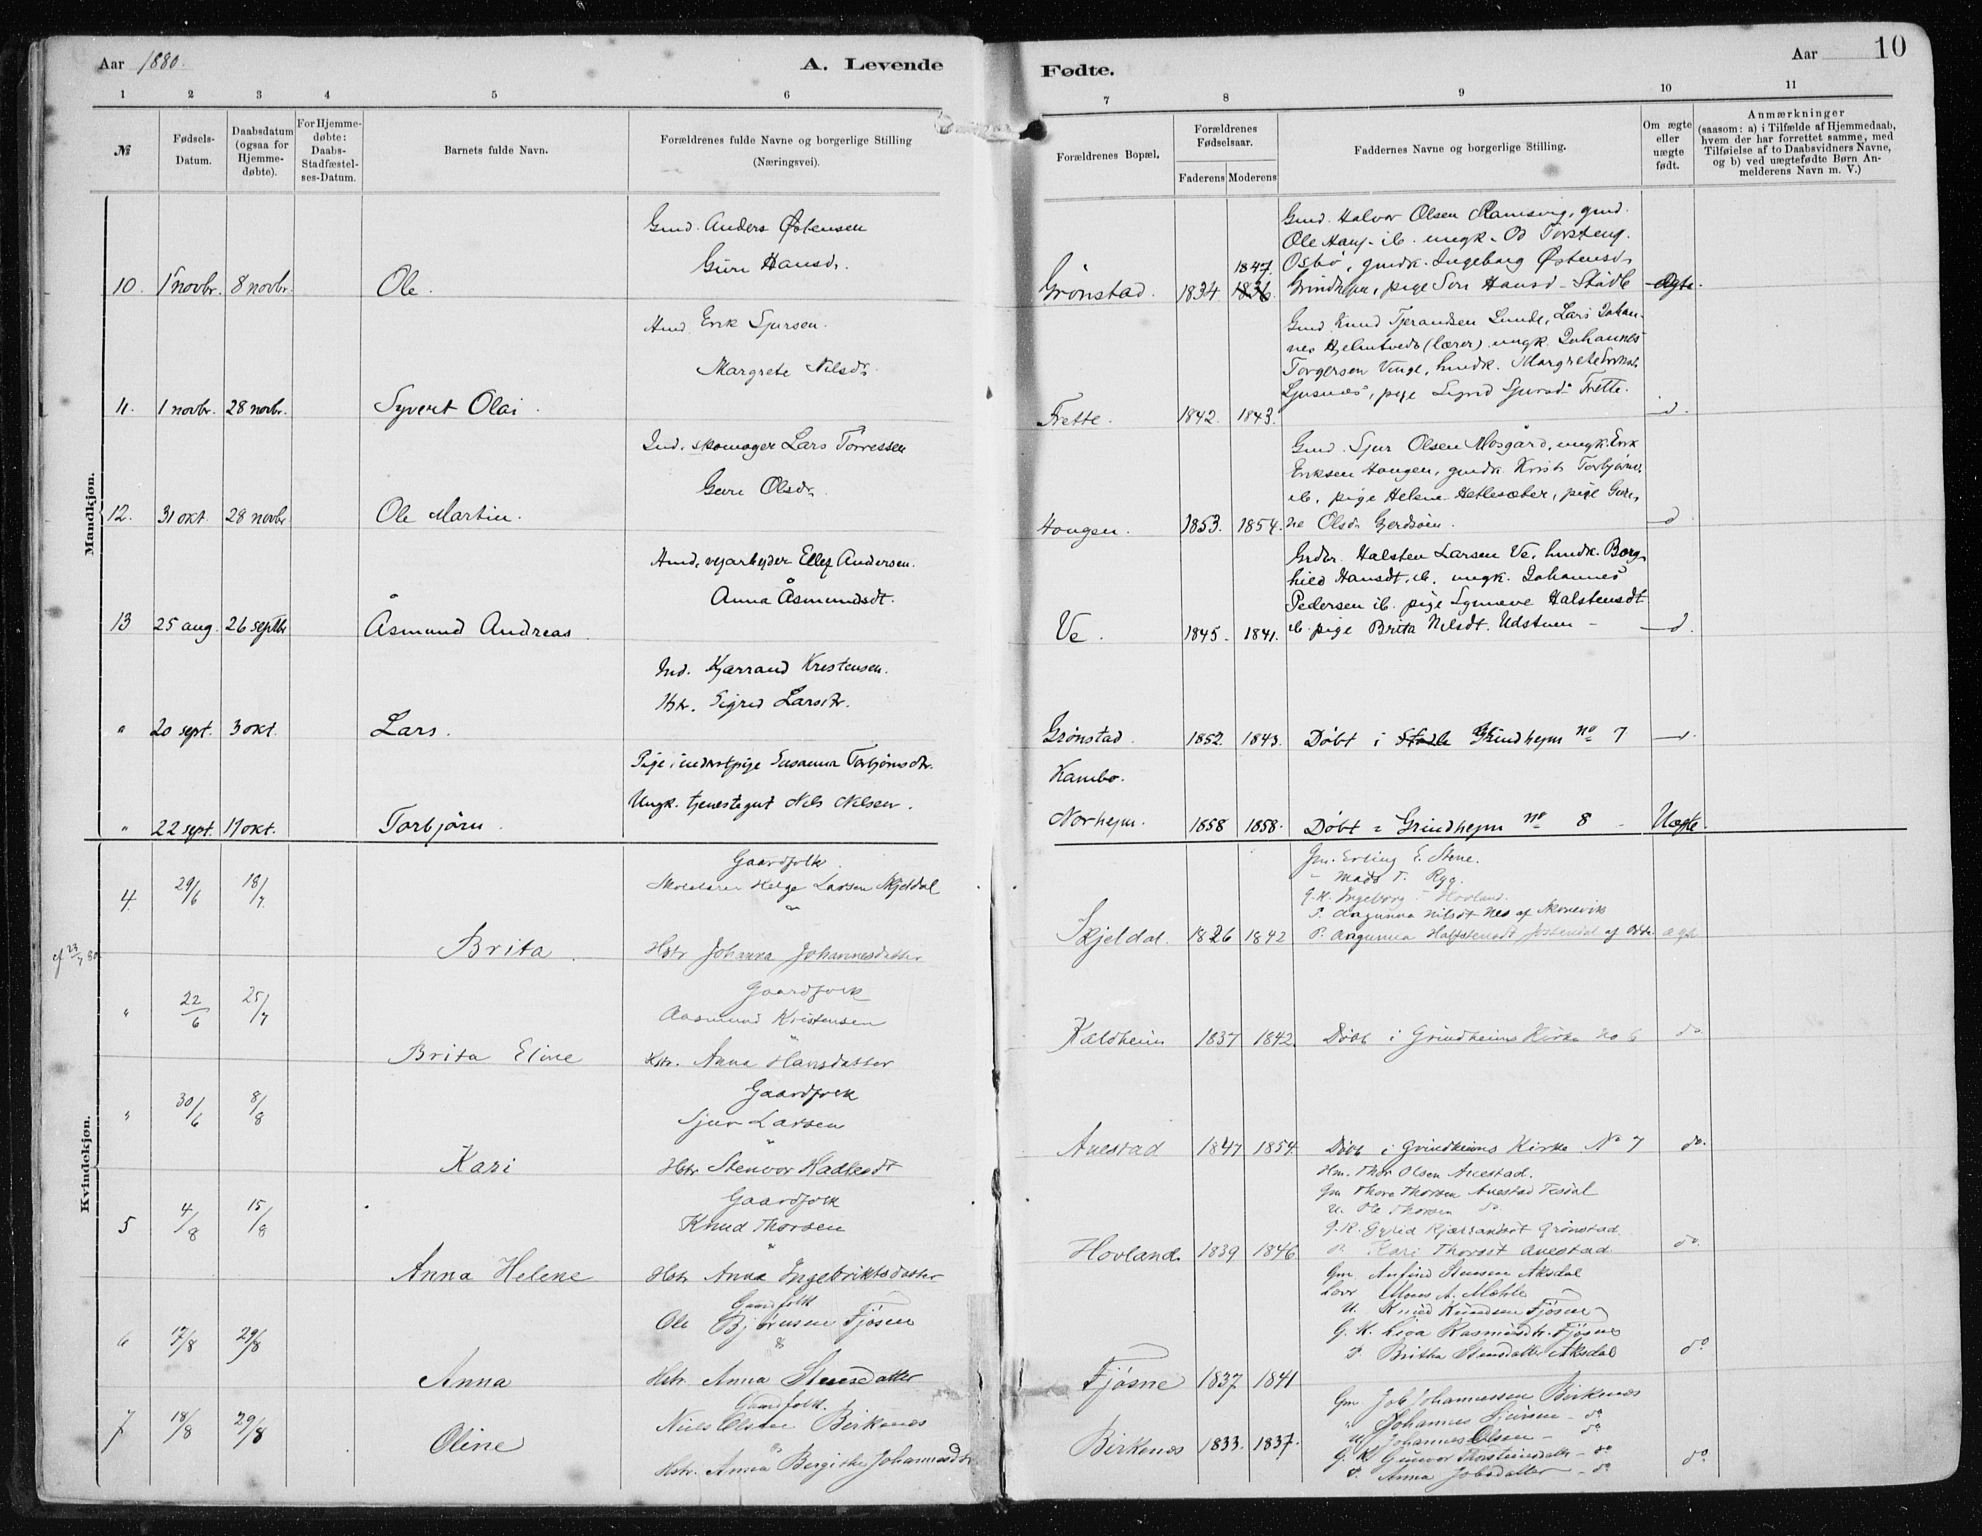 Aar 1880.
A. Levende
Fødte.
Aar
10
1 2 3 4 5 6
7 8 9 10 11
№
Fødsels-Datum.
Daabsdatum (ogsaa for Hjemme-døbte).
For Hjemme-døbte: Daabs-Stadfæstel-ses-Datum.
Barnets fulde Navn.
Forældrenes fulde Navne og borgerlige Stilling
(Næringsvei).
Forældrenes Bopæl.
Forældrenes Fødselsaar.
Faderens Moderens
Faddernes Navne og borgerlige Stilling.
Om ægte eller uægte født.
Anmærkninger
(saasom: a) i Tilfælde af Hjemmedaab,
hvem der har forrettet samme, med
Tilføielse af to Daabsvidners Navne,
og b) ved uægtefødte Børn An-
melderens Navn m. V.)
Mandkjøn.
Gmd. Anders Østensen
Guri Hansd.
10. 1 novbr. 8 novbr. Ole.
Grønstad. 1834 1847. 1836.
Gmd. Halvor Olsen Ramsvig, gmd.
Ole Haug ib. ungk. Od Torsteng.
Osbø, gmdk. Ingeborg Østensdr
Grindhejm, pige Hansd Stødle Ægte.
Hmd. Erik Sjursen.
Margrete Nilsdr.
11. 1 novbr. 28 novbr. Syvert Olai.
Frette. 1842. 1843.
Gmd. Knud Tjerandsen Lunde, Lars Johan-
nes (lærer) ungk. Johannes
Torgersen Vinge, hmdk. Margrete
pige Sigrid Frette. d.
Ind. skomager Lars Torressen
Guri Olsdr.
12. 31 okt. 28 novbr. Ole Martin.
Haugen. 1853. 1854.
Gmd. Sjur Olsen Mosgård, ungk. Erik
Eriksen Haugen, gmdk. Krist. Torbjørns
ib, pige Helene Hetlesæter, pige
Olsdr Gjerdsøen. d
Hmd. vejarbejder Ellef Andersen.
Anna Åsmundsdt.
13 25 aug. 26 septbr Åsmund Andreas.
Ve. 1845. 1841.
Halsten Larsen Ve, hmdk. Borg-
hild Hansdt. ib. ungk. Johannes
Pedersen ib. pige Synneve Halstensdt
ib. pige Brita Nilsdt. Udstuen d.
Ind. Kjærrand Kristensen.
Hstr. Sigrid Larsdtr.
" 20 sept. 3 okt. Lars.
Grønstad. 1852. 1843. Døbt i Stødle Grindhejm no 7 d.
Pige, Susanna Torbjørnsdtr.
Ungk. tjenestegut Nils Nilsen.
Kambo.
" 22 sept. 17 okt. Torbjørn. Norhejm. 1858 1858. Døbt i Grindhejm no 8 Uægte.
Kvindekjøn.
Gaardfolk.
Helge Larsen Skjeldal
4. 29/6 18/7 Brita. Hstr Johanna Johannesdatter
Skjeldal. 1826 1842
Gm. Erling E. Stene.
" Mads T. Ryg.
G.K. Ingeborg Hovland.
P. Nilsdt Nes af Skonevik
P. ægte
Gaardfolk
Aasmund Kristensen
" 22/6 25/7 Brita Eline Hstr. Anna Hansdatter
Kaldheim 1837 1842. Døbt i Grindheims Kirke No 6 do
Gaardfolk
Sjur Larsen
" 30/6 8/8 Kari Hstr Stenvor Hadlesdt
Auestad 1847 1854. Døbt i Grindheims Kirke No 7 do.
Gaardfolk
Knud Thorsen
5 4/8 15/8 Anna Helene Hstr Anna Ingebriktsdatter
Hovland 1839 1846.
Hm. Thor Olsen Auestad.
Gm Thore Thorsen Auestad
U. Ole Thorsen do
G.K. Kjærrandsdt Grønstad.
Kari Thorsdt Auestad. do.
Gaardfolk
Ole Bjørnsen Fjøsne
6 17/8 29/8 Anna Hstr. Anna Stensdatter
Fjøsne 1837 1841
Gm. Anfind Stensen Aksdal
Mons A. Mæhle
U. Knud Knudsen Fjøsne
G.K. Rasmusdtr. Fjøsne
P. Britha Stensdatter Aksdal do
Gaardfolk.
Niels Olsen Birkenes
7 18/8 29/8 Oline Hstr. Anna Bergithe Johannesdtr
Birkenes 1833. 1837.
Gm. Job Johannessen Birkenes
" Johannes do
U. Johannes Olsen do
G.K. Gunvor Thorsteinsdatter do
P. Anna Jobsdatter do do